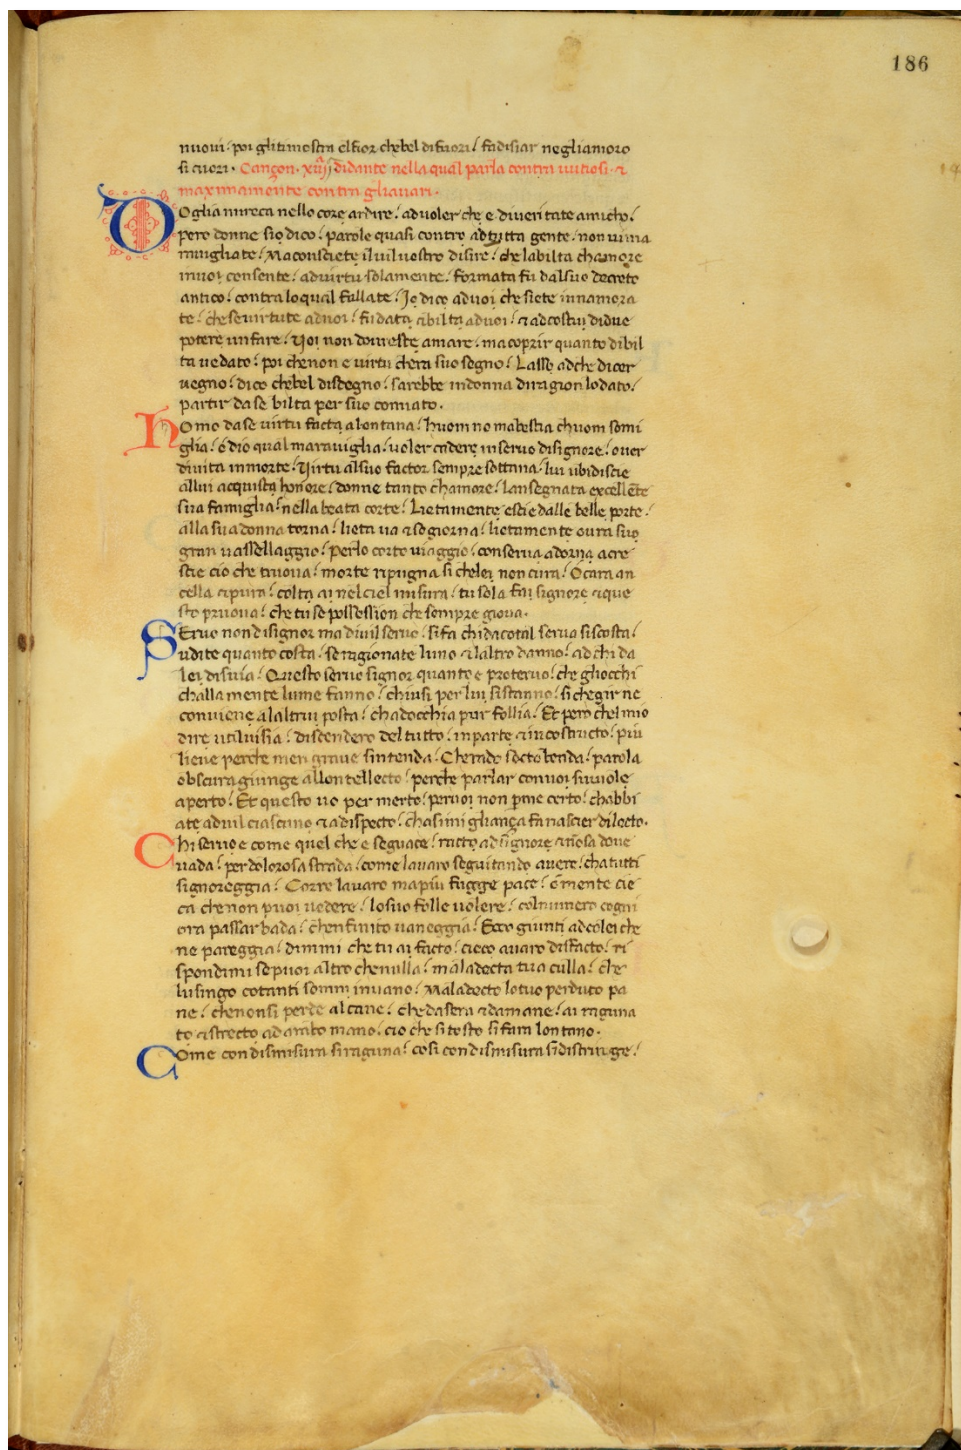 186
nuovi / poi glitimostra elfior chebel difuori / fadisiar negliamoro
si cuori . Cançon . xiiii didante nella qual parla contra uitiosi . &
maximamente contra gliauari .
Doglia mireca nello core ardire / aduoler che e diueritate amicho /
pero donne sio dico / parole quasi contro adtutta gente / non uima
rauigliate / Maconsciete iluiluostro disire / che labilta chamore
inuoi consente / aduirtu solamente / formata fu dalsuo decreto
antico / contra loqual fallate / Io dico aduoi che siete innamora
te / cheseuirtute aduoi / fu data & bilta aduoi / & adcostui didue
potere unfare / Voi non doureste amare / ma coprir quanto dibil
ta uedato / poi chenon e uirtu chera suo segno / Lasso adche dicer
uegno / dico chebel disdegno / sarebbe indonna diragion lodato /
partir dase bilta per suo comiato .
Homo dase uirtu facta alontana / huom no mabestia chuom somi
glia / o dio qual marauiglia / uoler cadere inseruo disignore / ouer
diuita inmorte / Virtu alsuo factor sempre sottana / lui ubidiscie
allui acquista honore / donne tanto chamore / lansegnata excellete
sua famiglia / nella beata corte / Lietamente escie dalle belle porte /
alla sua donna torna / lieta ua & sogiorna / lietamente oura suo
gran uassellaggio / perlo corto uiaggio / conserua adorna acre
scie cio che truoua / morte ripugna si chelei non cura / O cara an
cella & pura / colta ai nelciel misura / tu sola fai signore & que
sto pruoua / che tu se possession che sempre gioua .
Seruo non disignor ma diuil seruo / si fa chi dacotal serua siscosta /
udite quanto costa / se ragionate luno & laltro danno / ad chi da
lei disuia / Questo seruo signor quanto e proteruo / che gliocchi
challa mente lume fanno / chiusi per lui sistanno / si chegir ne
conuiene alaltrui posta / chadocchia pur follia / Et pero chelmio
dire utiluisia / discendero del tutto / inparte & incostructo / piu
lieue perche men graue sintenda / Cherado socto benda / parola
obscura giunge allontellecto / perche parlar conuoi siuuole
aperto / Et questo uo per merto / peruoi non pme certo / chabbi
ate aduil ciascuno & adispecto / chasimigliança fa nascier dilecto .
Chi seruo e come quel che e seguace / ratto ad signore & nosa doue
uada / per dolorosa strada / come lauaro seguitando auere / chatutti
signoreggia / Corre lauaro ma piu fugge pace / o mente cie
ca chenon puoi uedere / losuo folle uolere / colnumero cogni
ora passar bada / chenfinito uaneggia / Ecco giunti adcolei che
ne pareggia / dimmi che tu ai facto / cieco auaro disfacto / ri
spondimi sepuoi altro chenulla / maladecta tua culla / che
lusingo cotanti somni inuano / Maladecto lotuo perduto pa
ne / chenonsi perde alcane / chedasera & damane / ai raguna
to & strecto ad ambo mano / cio che si tosto si fara lontano .
Come con dismisura siraguna / cosi con dismisura sidistringe /